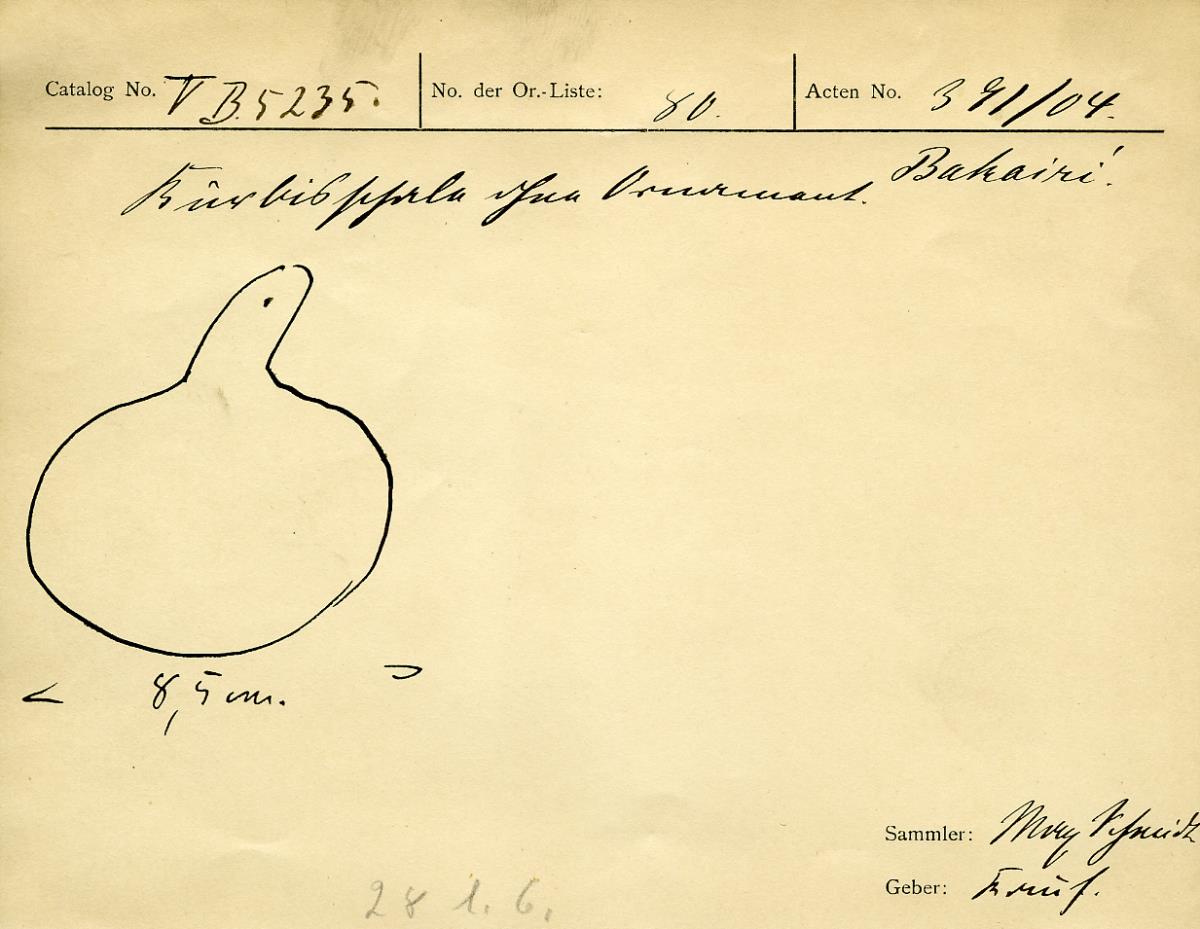 Catalog No. V B. 5235. No. der Or.-Liste: 80. Acten No. 391/04.
Bakairi!
Kürbisschale ohne Ornament.
8,5 cm.
Sammler: Max Schmidt
Geber: Kauf.
28 1. 6.